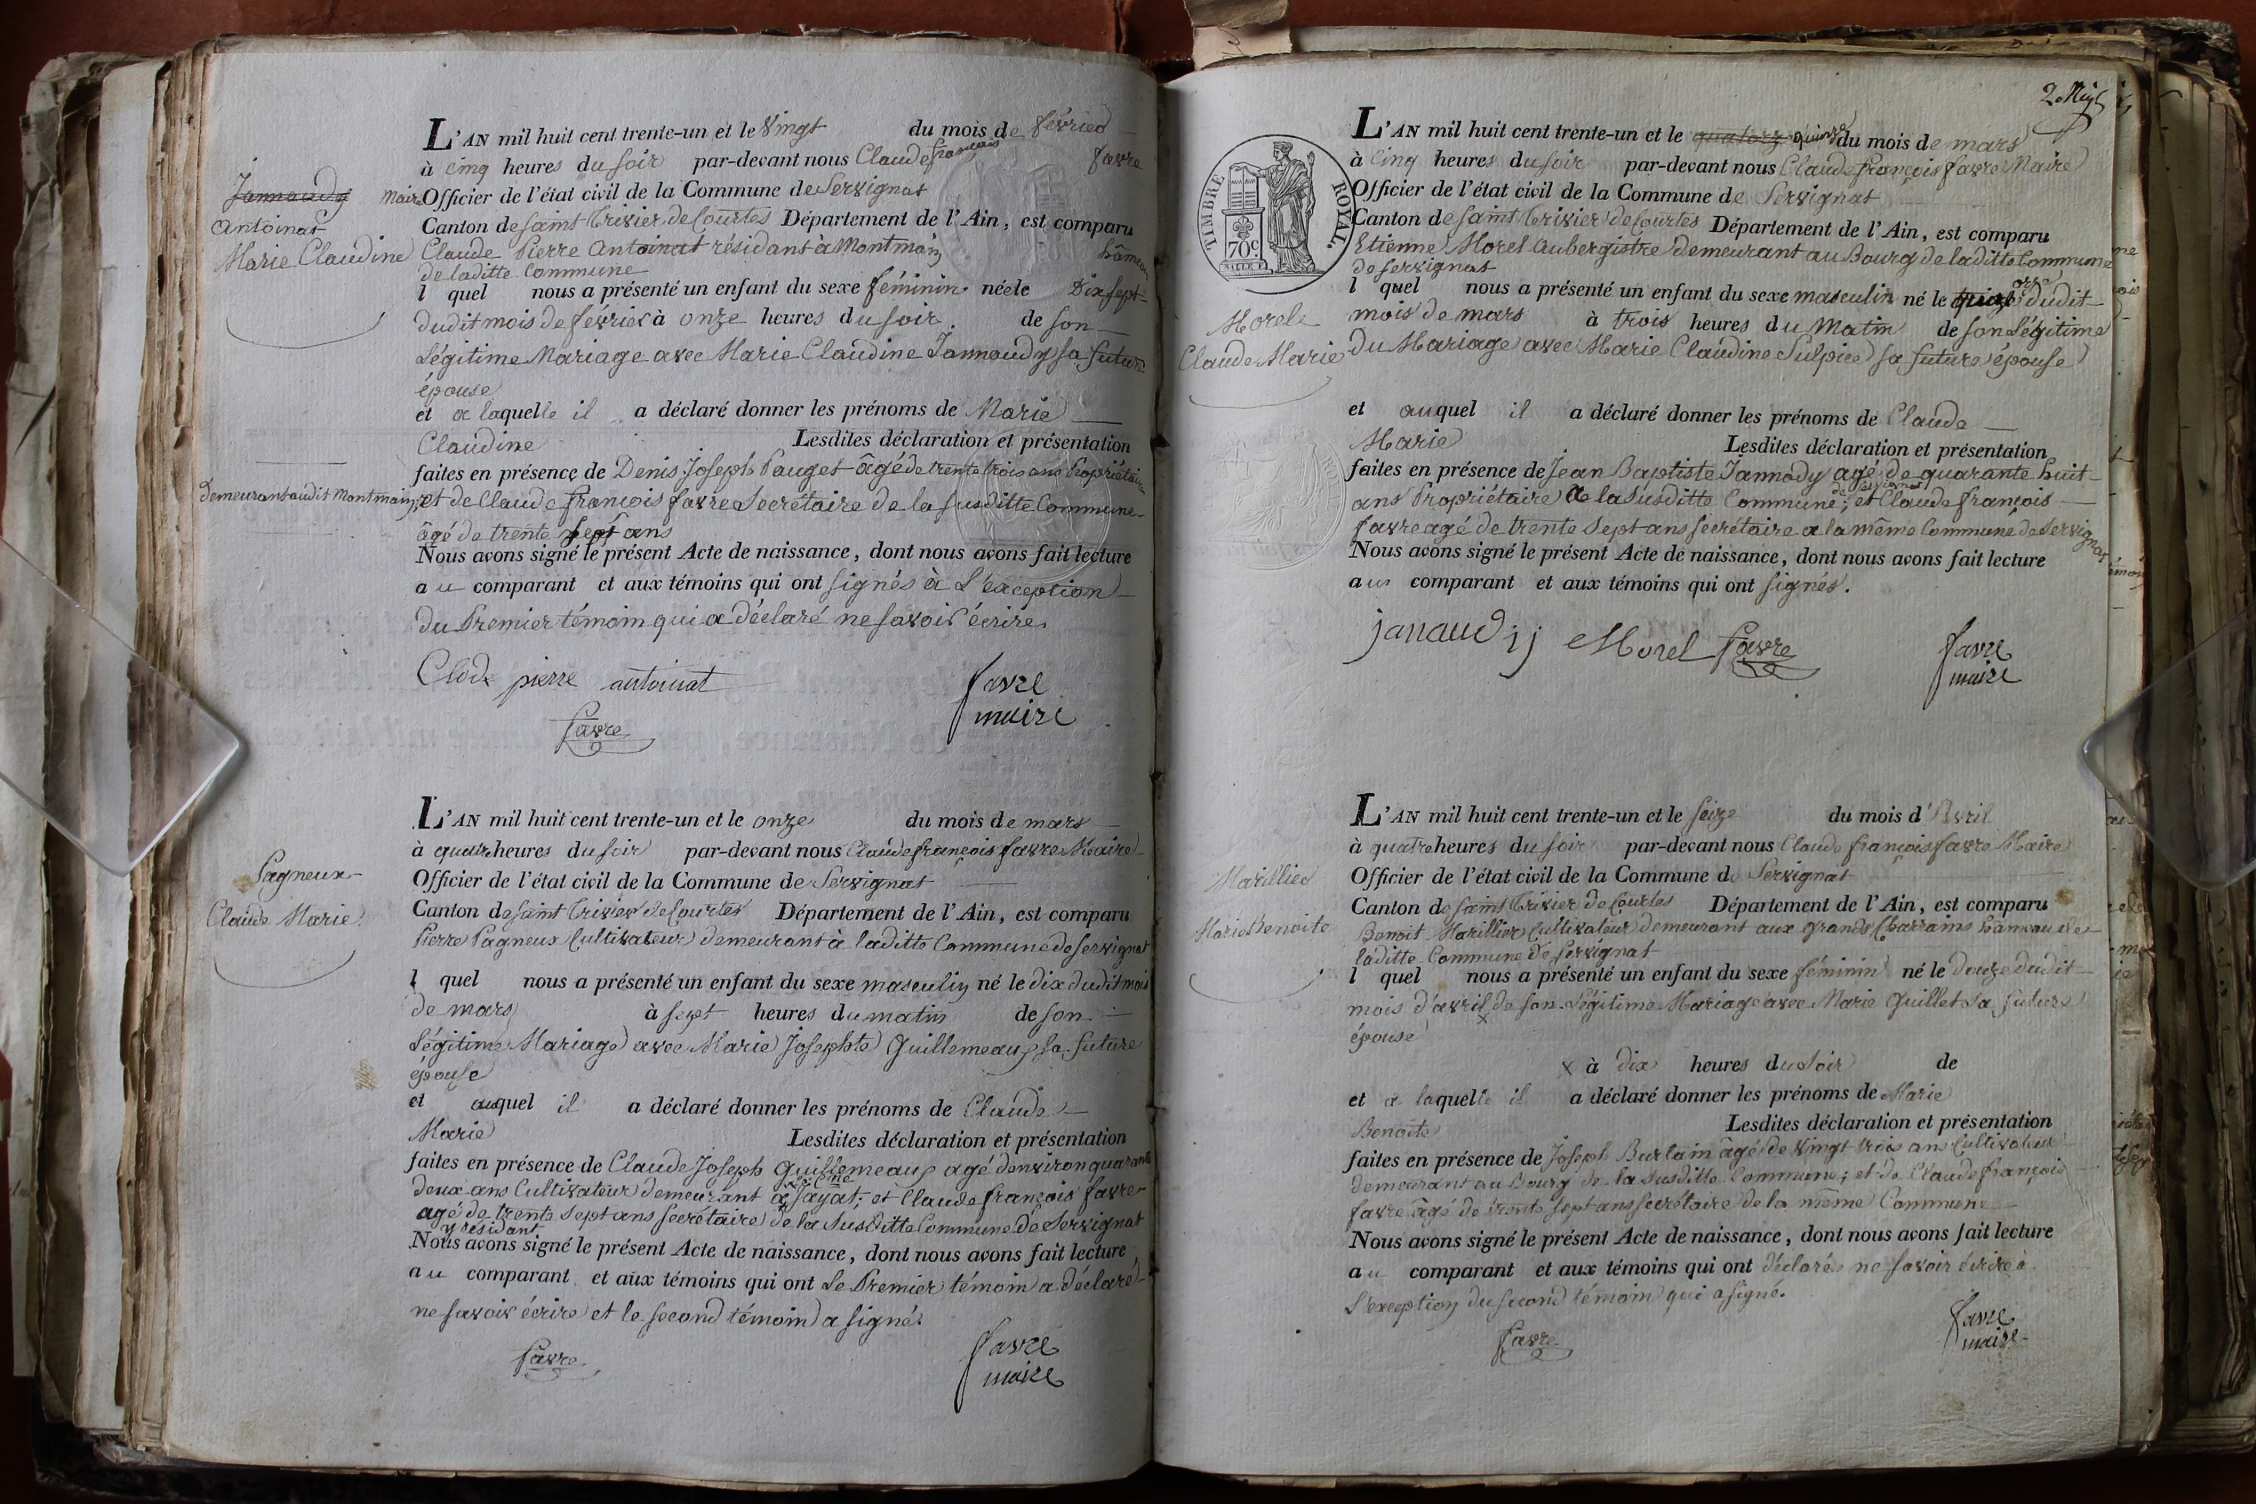 L'AN mil huit cent trente-un et le Vingt du mois de février
à cinq heures du soir par-devant nous Claude françois favre
Maire Officier de l'état civil de la Commune de Servignat
Canton de Saint Trivier de Courtes Département de l'Ain, est comparu
Claude Pierre Antoinat résidant à Montmain hâmeau
de laditte Commune
l quel nous a présenté un enfant du sexe féminin néele Dix sept
dudit mois de fevrier à onze heures du soir de son
Légitime Mariage avec Marie Claudine Jannaudy sa future
épouse
et a laquelle il a déclaré donner les prénoms de Marie
Claudine Lesdites déclaration et présentation
faites en présence de Denis Joseph Pauget âgé de trente trois ans Propriétaire
demeurant audit Montmain, et de Claude françois favre Secrétaire de la susditte Commune
âgé de trente sept ans
Nous avons signé le présent Acte de naissance, dont nous avons fait lecture
au comparant et aux témoins qui ont signés à L'exception
du Premier témoin qui a déclaré ne savoir écrire
Clode pierre antoinat favre
maire
favre
Jannaudy
Antoinat
Marie Claudine
L'AN mil huit cent trente-un et le onze du mois de mars
à quatre heures du soir par-devant nous Claude françois favre Maire
Officier de l'état civil de la Commune de Servignat
Canton de Saint Trivier de Courtes Département de l'Ain, est comparu
Pierre Pagneux Cultivateur demeurant à laditte Commune de Servignat
l quel nous a présenté un enfant du sexe masculin né le dix dudit mois
de mars à sept heures du matin de son
Légitime Mariage avec Marie Josephte Guillemeaup sa future
epouse
et auquel il a déclaré donner les prénoms de Claude
Marie Lesdites déclaration et présentation
faites en présence de Claude Joseph Guillemeaup agé d'environ quarante
deux ans Cultivateur demeurant a Jayat; et Claude françois favre
agé de trente sept ans secrétaire de la susditte Commune de Servignat
y résidant
Nous avons signé le présent Acte de naissance, dont nous avons fait lecture
au comparant et aux témoins qui ont Le Premier témoin a déclaré
ne savoir écrire et le second témoin a signé.
favre favre
maire
Pagneux
Claude Marie
2.
L'AN mil huit cent trente-un et le quatorz quinze du mois de mars
à Cinq heures du soir par-devant nous Claude françois favre Maire
Officier de l'état civil de la Commune de Servignat
Canton de Saint Trivier de Courtes Département de l'Ain, est comparu
Etienne Morel Aubergistre demeurant au Bourg de laditte Commune
de Servignat
l quel nous a présenté un enfant du sexe masculin né le onze dudit
mois de mars à trois heures du Matin de son Légitime
du Mariage avec Marie Claudine Sulpice sa future épouse
et auquel il a déclaré donner les prénoms de Claude
Marie Lesdites déclaration et présentation
faites en présence de Jean Baptiste Jannody agé de quarante huit
ans Propriétaire de la susditte Commune de Servignat; et Claude françois
favre agé de trente sept ans secrétaire a la même Commune de Servignat
Nous avons signé le présent Acte de naissance, dont nous avons fait lecture
au comparant et aux témoins qui ont signés.
janaudij Morel favre favre
maire
TIMBRE ROYAL.
70c
Morel
Claude Marie
L'AN mil huit cent trente-un et le Seize du mois d'Avril
à quatre heures du soir par-devant nous Claude françois favre Maire
Officier de l'état civil de la Commune de Servignat
Canton de Saint Trivier de Courtes Département de l'Ain, est comparu
Benoit Marillier Cultivateur demeurant aux grands Charrains hameau de
laditte Commune de Servignat
l quel nous a présenté un enfant du sexe féminin né le douze dudit
mois d'avril de son Légitime Mariage avec Marie Guillet sa future
épouse
x à dix heures du soir de
et a laquelle il a déclaré donner les prénoms de Marie
Benoite Lesdites déclaration et présentation
faites en présence de Joseph Burlain âgé de Vingt trois ans Cultivateur
demeurant au Bourg de la susditte Commune; et de Claude françois
favre âgé de trente sept ans secrétaire de la même Commune
Nous avons signé le présent Acte de naissance, dont nous avons fait lecture
au comparant et aux témoins qui ont déclarés ne savoir écrire à
L'exception du second témoin qui a signé.
favre favre
maire
Marillier
Marie Benoite